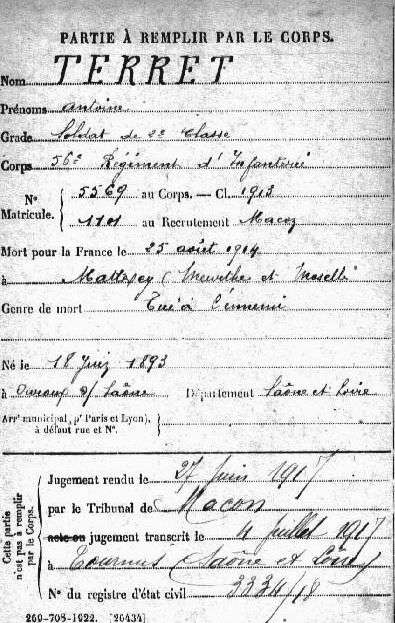 PARTIE À REMPLIR PAR LE CORPS.
Nom TERRET
Prénoms Antoine
Grade Soldat de 2e Classe
Corps 56e Régiment d'Infanterie
N° Matricule. { 5569 au Corps. — Cl. 1913
1101 au Recrutement Macon
Mort pour la France le 25 août 1914
à Mattexey (Meurthe et Moselle
Genre de mort Tué à l'ennemi
Né le 18 Juin 1893
à Ouroux s/ Saône Département Saône et Loire
Arrt municipal, (pr Paris et Lyon),
à défaut rue et N°.
Cette partie n'est pas à remplir par le Corps.
Jugement rendu le 27 Juin 1917
par le Tribunal de Macon
acte ou jugement transcrit le 4 Juillet 1917
à Tournus (Saône et Loire)
N° du registre d'état civil 3334/18
269-708-1922. [26434]